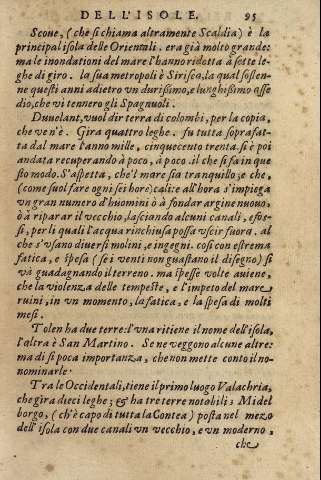 DELL'ISOLE. 95
Scoue, (che si chiama altramente Scaldia) è la
principal isola delle Orientali. era già molto grande:
ma le inondationi del mare l'hanno ridotta à sette le-
ghe di giro. la sua metropoli è Sirisea, la qual sosten-
ne questi anni adietro vn durißimo, e lunghißimo asse
dio, che vi tennero gli Spagnuoli.
Duuelant, vuol dir terra di colombi, per la copia,
che ve n'è. Gira quattro leghe. fu tutta soprafat-
ta dal mare l'anno mille, cinquecento trenta. si è poi
andata recuperando à poco, à poco. il che si fa in que
sto modo. S'aspetta, che'l mare sia tranquillo; e che,
(come suol fare ogni sei hore) cali: e all'hora s'impiega
vn gran numero d'huomini ò à fondar argine nuouo,
ò à riparar il vecchio, lasciando alcuni canali, e fos-
si, per li quali l'acqua rinchiusa possa vscir fuora. al
che s'vsano diuersi molini, e ingegni. cosi con estrema
fatica, e spesa (se i venti non guastano il disegno) si
và guadagnando il terreno. ma spesse volte auiene,
che la violenza delle tempeste, e l'impeto del mare
ruini, in vn momento, la fatica, e la spesa di molti
mesi.
Tolen ha due terre: l'vna ritiene il nome dell'isola,
l'altra è San Martino. Se ne veggono alcune altre:
ma di si poca importanza, che non mette conto il no-
nominarle.
Tra le Occidentali, tiene il primo luogo Valachria,
che gira dieci leghe; & ha tre terre notabili; Midel
borgo, (ch'è capo di tutta la Contea) posta nel mezo
dell'isola con due canali vn vecchio, e vn moderno,
che